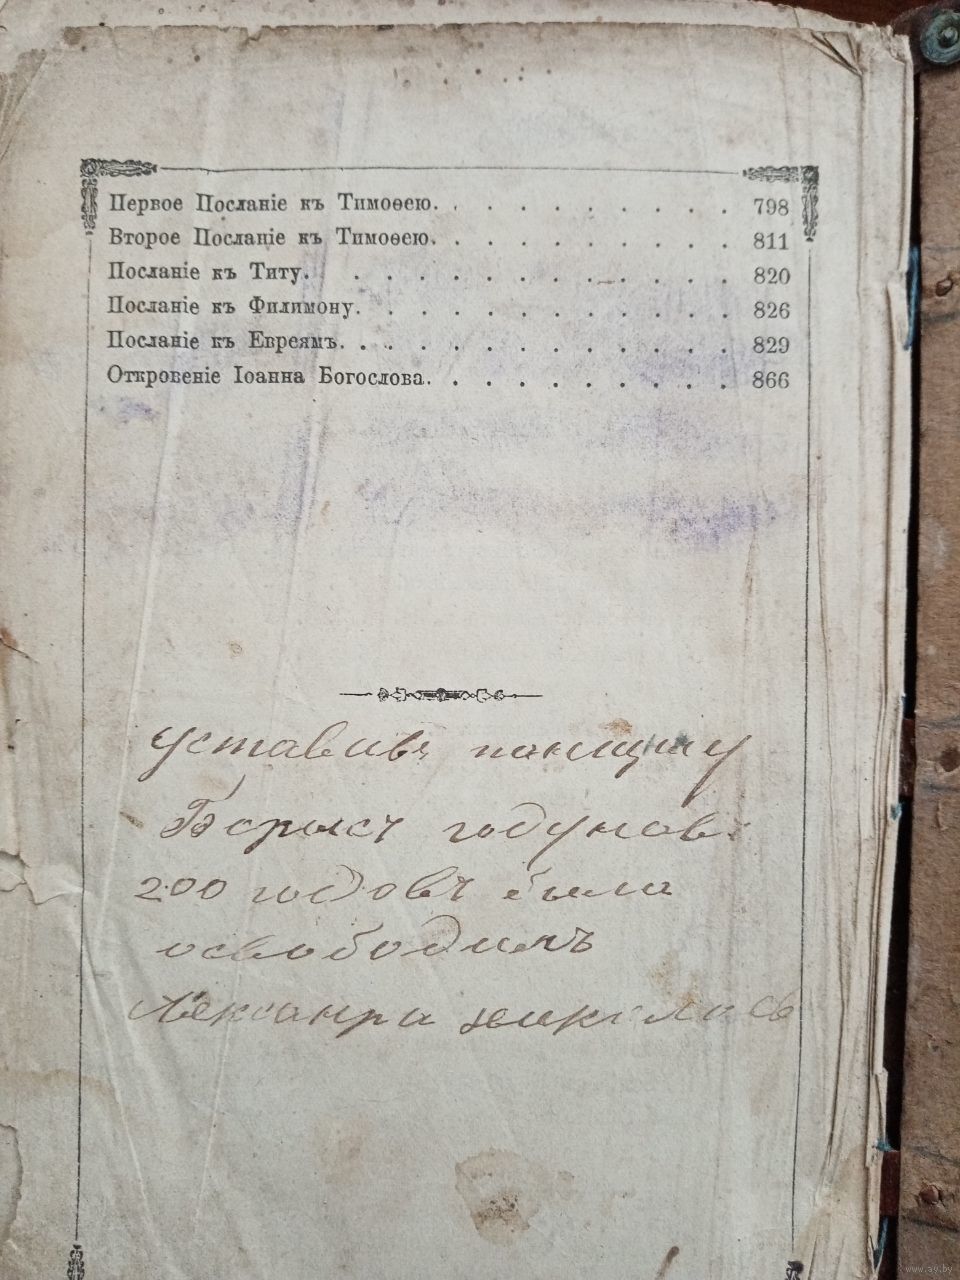 Первое Посланіе къ Тимоѳею. . . . . . . . . . 798
Второе Посланіе къ Тимоѳею. . . . . . . . . . 811
Посланіе къ Титу. . . . . . . . . . . . . 820
Посланіе къ Филимону. . . . . . . . . . . . 826
Посланіе къ Евреямъ. . . . . . . . . . . . . 829
Откровеніе Іоанна Богослова. . . . . . . . . . 866
уставивъ панщину
Борысъ годуновъ
200 годовъ была
освободилъ
www.ay.by